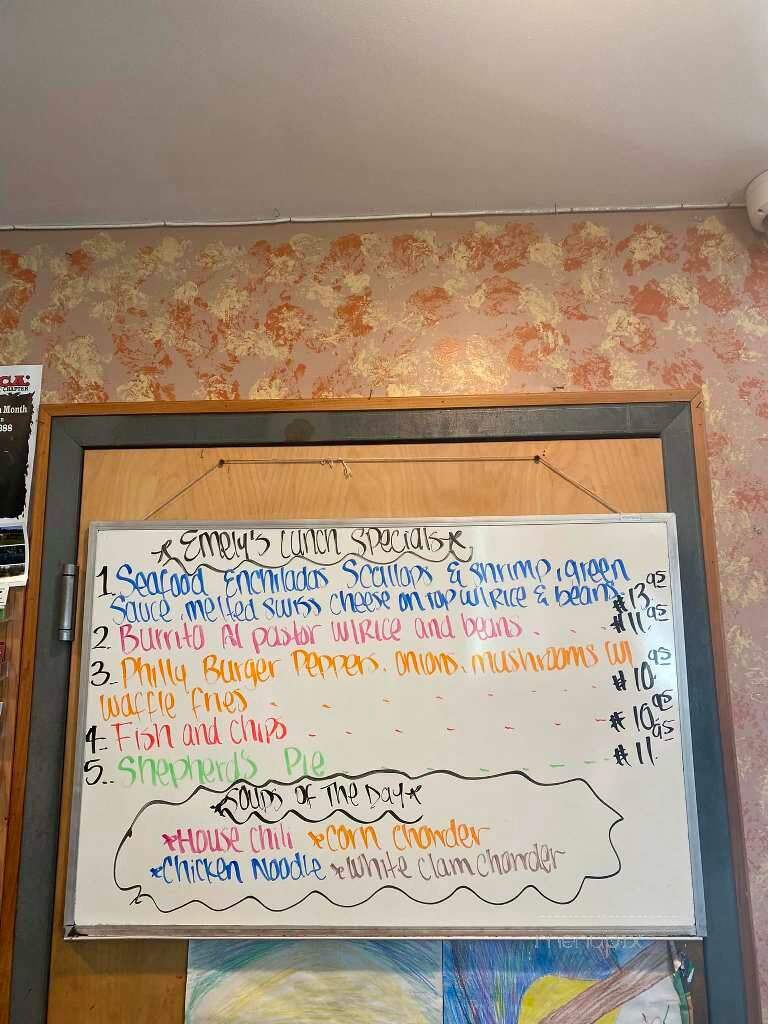 CA:
CHAPTER
Month
888
★Emely's Lunch Specials★
1. Seafood Enchiladas Scallops & shrimp, green
Sauce, melted swiss cheese on top w/Rice & beans. $13.95
2. Burrito Al pastor w/Rice and beans . . . $11.95
3. Philly Burger Peppers, onions, mushrooms w/
waffle fries . - - - - - $10.95
4. Fish and chips - - - - - - $10.95
5. Shepherd's Pie - - - - $11.95
★Soups of The Day★
★House Chili ★Corn Chowder
★Chicken Noodle ★White Clam Chowder
menupix